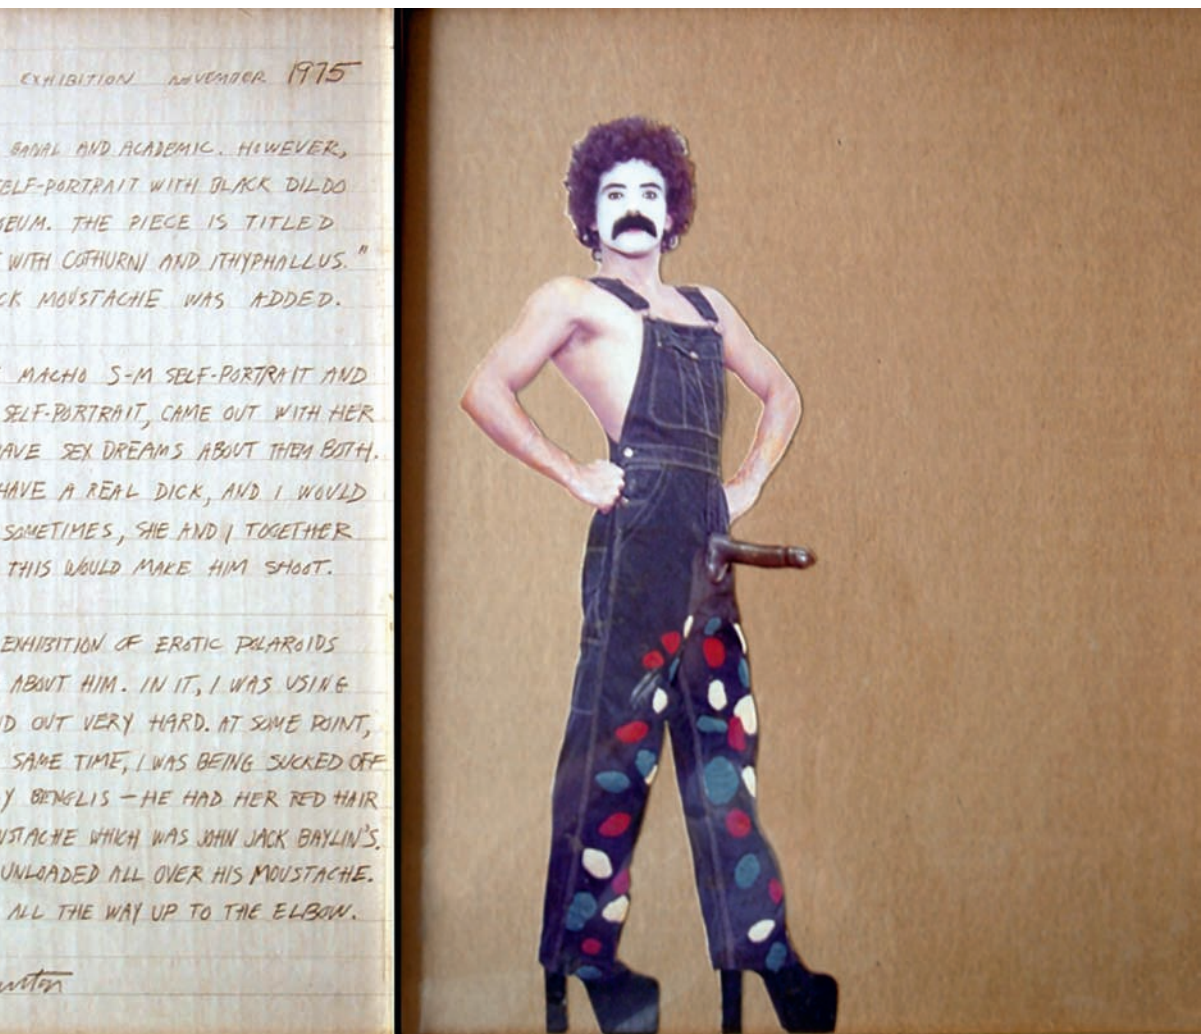 EXHIBITION NOVEMBER 1975
BANAL AND ACADEMIC. HOWEVER,
SELF-PORTRAIT WITH BLACK DILDO
SEUM. THE PIECE IS TITLED
WITH COTHURNI AND ITHYPHALLUS."
CK MOUSTACHE WAS ADDED.
MACHO S-M SELF-PORTRAIT AND
SELF-PORTRAIT, CAME OUT WITH HER
AVE SEX DREAMS ABOUT THEM BOTH.
HAVE A REAL DICK, AND I WOULD
SOMETIMES, SHE AND I TOGETHER
THIS WOULD MAKE HIM SHOOT.
EXHIBITION OF EROTIC POLAROIDS
ABOUT HIM. IN IT, I WAS USING
D OUT VERY HARD. AT SOME POINT,
SAME TIME, I WAS BEING SUCKED OFF
Y BENGLIS — HE HAD HER RED HAIR
USTACHE WHICH WAS JOHN JACK BAYLIN'S.
UNLOADED ALL OVER HIS MOUSTACHE.
ALL THE WAY UP TO THE ELBOW.